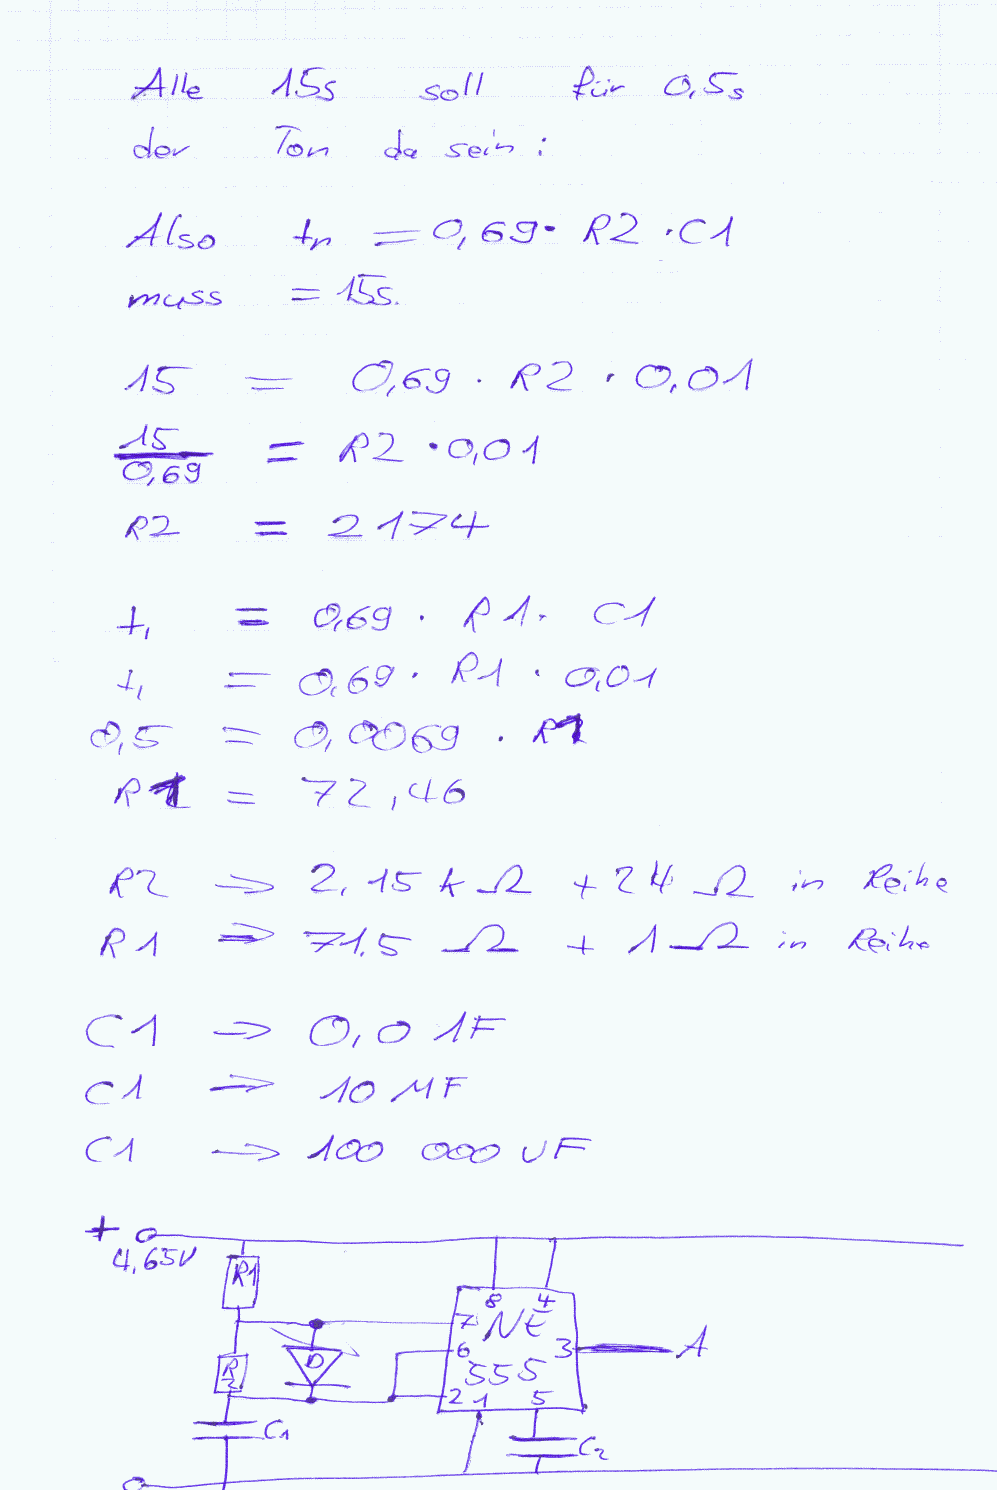 Alle 15s soll für 0,5s
der Ton da sein:
Also tn = 0,69 · R2 · C1
muss = 15s.
15 = 0,69 · R2 · 0,01
15/0,69 = R2 · 0,01
R2 = 2174
t1 = 0,69 · R1 · C1
t1 = 0,69 · R1 · 0,01
0,5 = 0,0069 · R1
R1 = 72,46
R2 => 2.15 kΩ + 24 Ω in Reihe
R1 => 71.5 Ω + 1 Ω in Reihe
C1 => 0,01F
C1 => 10 MF
C1 -> 100 000 UF
+
4,65V
R1
8 4
7 NE
6 3 A
D
R2
555
2 1 5
C1
C2